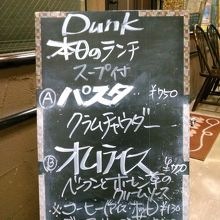 Dunk
本日のランチ
スープ付
Ⓐ パスタ ¥750
クラムチャウダー
Ⓑ オムライス ¥700
ベーコンとホーレン草の
クリームソース
※コーヒー(アイス・ホット) ¥130